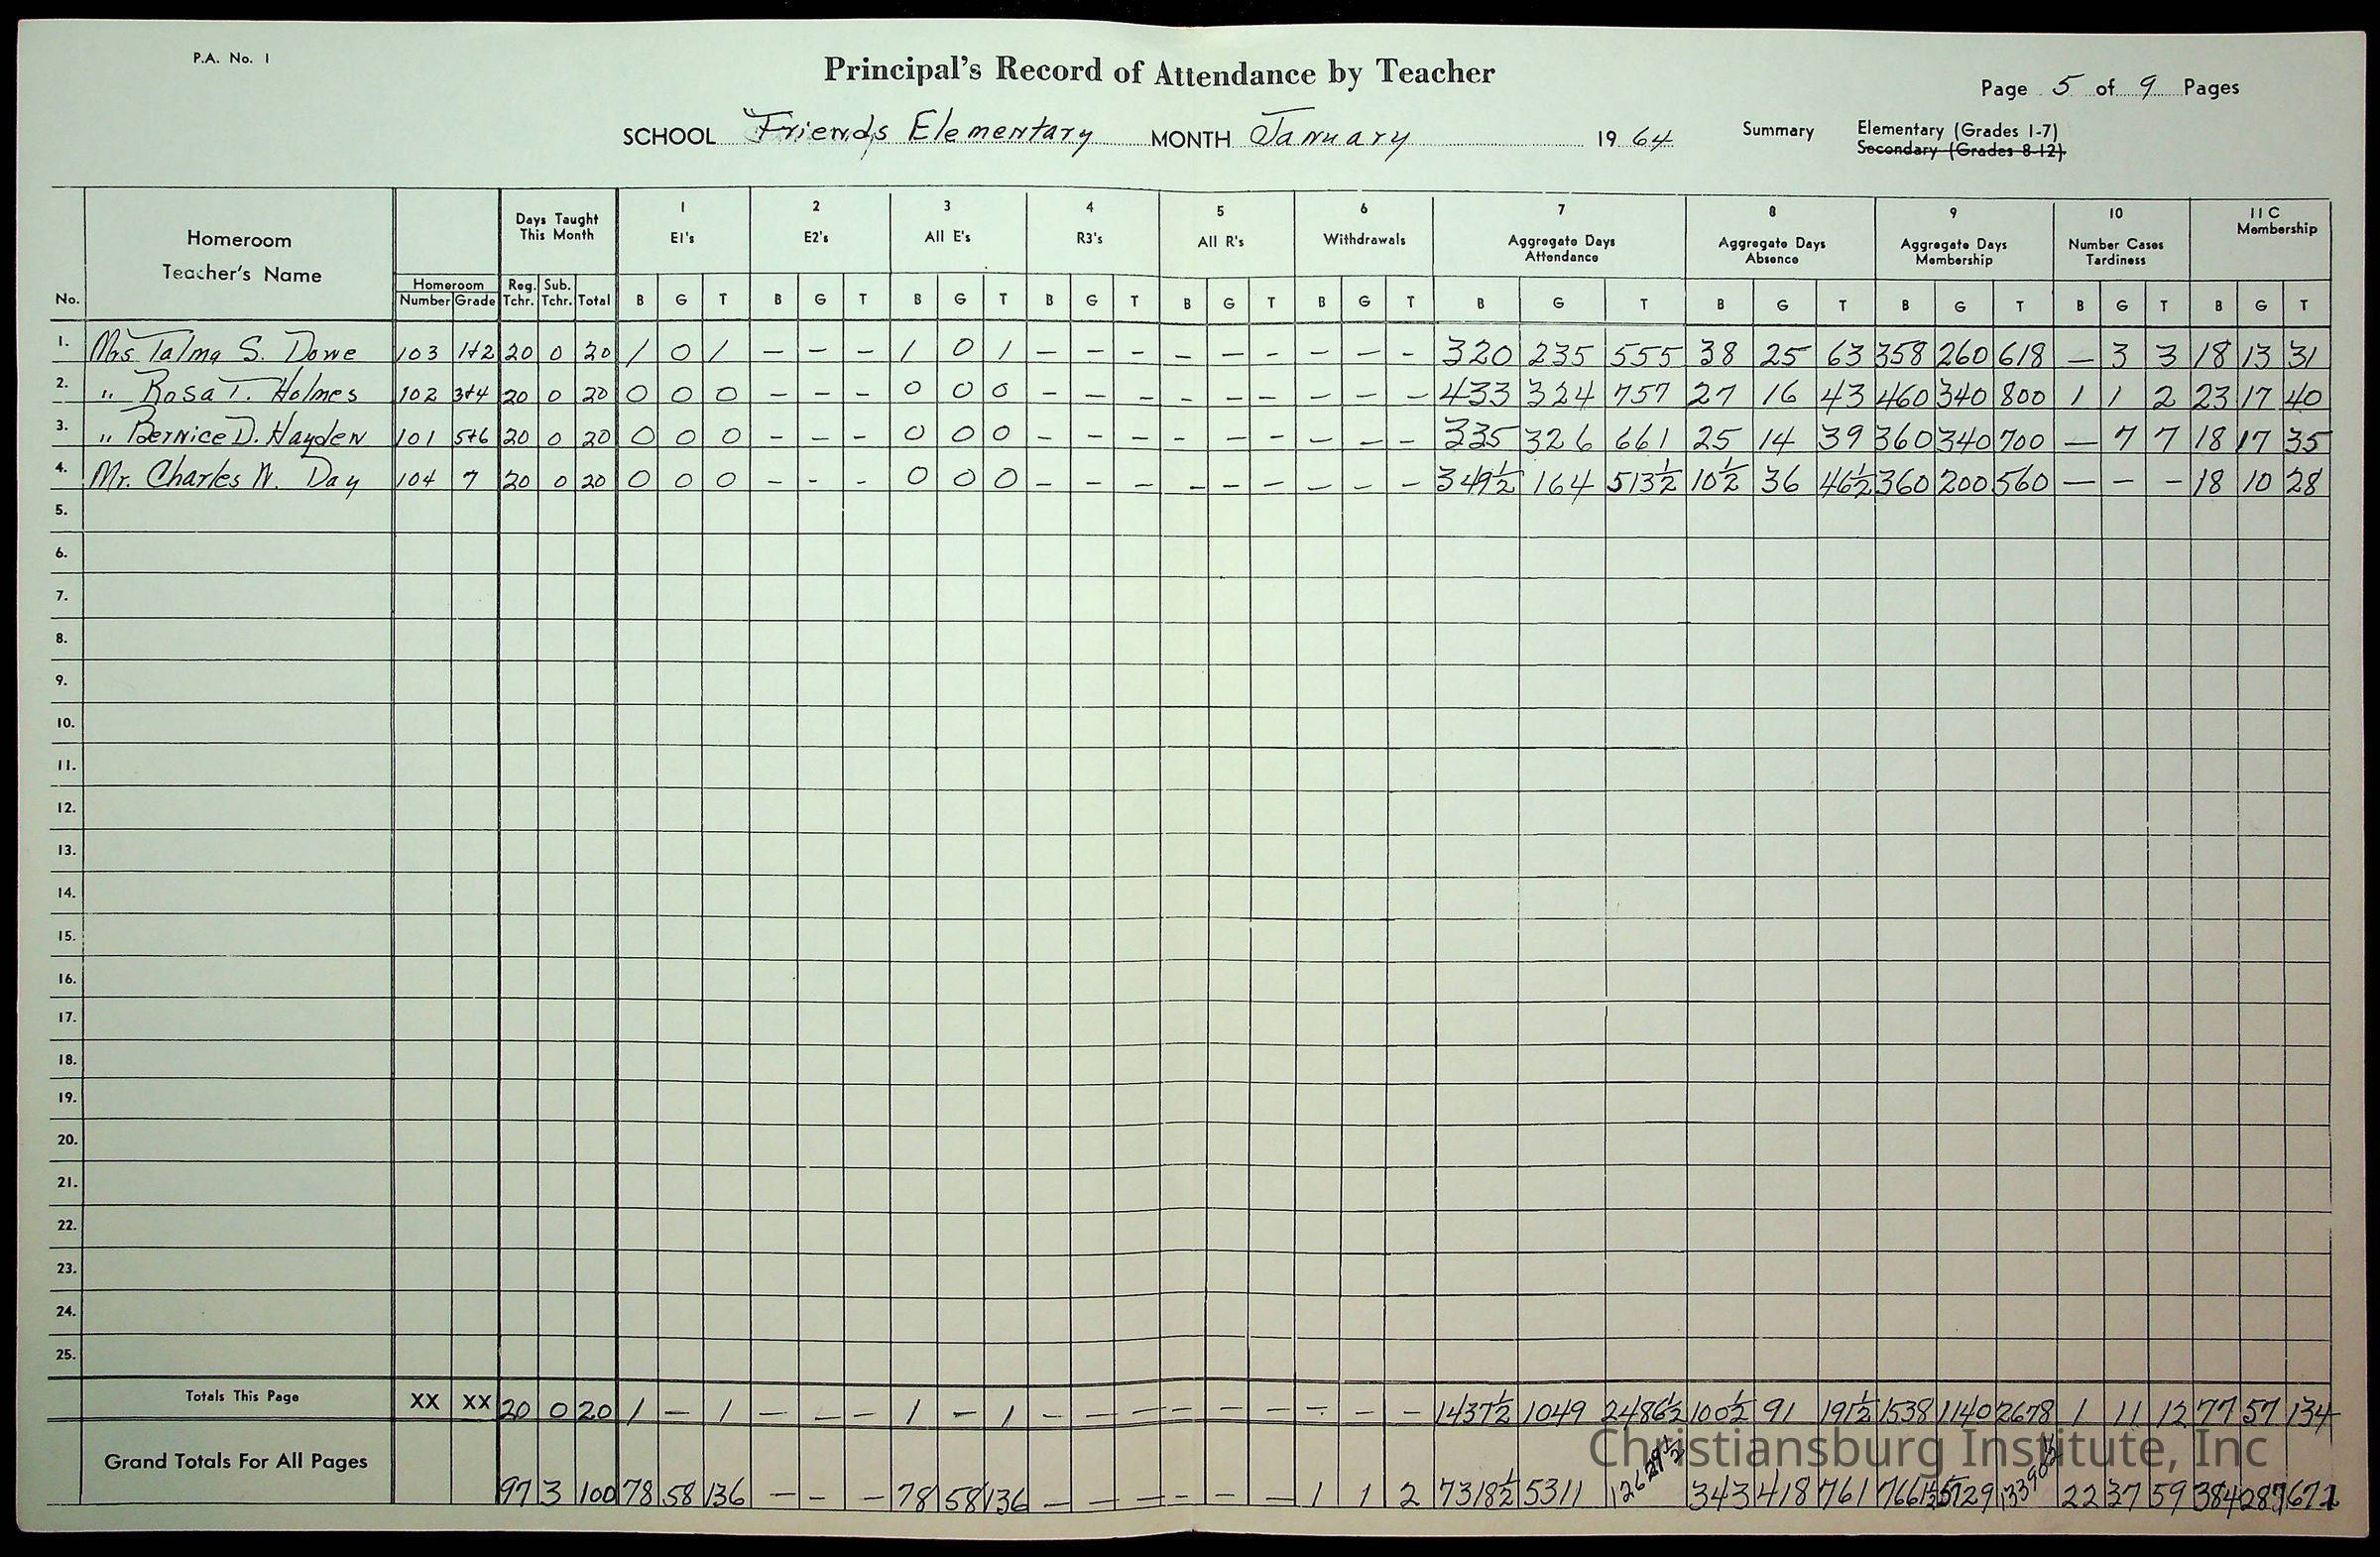 P.A. No. 1
Principal's Record of Attendance by Teacher
Page 5 of 9 Pages
SCHOOL Friends Elementary MONTH January 1964 Summary Elementary (Grades 1-7)
Secondary (Grades 8-12)
No. Homeroom Teacher's Name Homeroom Number Grade Days Taught This Month Reg. Tchr. Sub. Tchr. Total 1 E1's 2 E2's 3 All E's 4 R3's 5 All R's 6 Withdrawals 7 Aggregate Days Attendance 8 Aggregate Days Absence 9 Aggregate Days Membership 10 Number Cases Tardiness 11C Membership
B G T B G T B G T B G T B G T B G T B G T B G T B G T B G T B G T
1. Mrs. Talma S. Dowe 103 1+2 20 0 20 1 0 1 – – – 1 0 1 – – – – – – – – – 320 235 555 38 25 63 358 260 618 – 3 3 18 13 31
2. " Rosa T. Holmes 102 3+4 20 0 20 0 0 0 – – – 0 0 0 – – – – – – – – – 433 324 757 27 16 43 460 340 800 1 1 2 23 17 40
3. " Bernice D. Hayden 101 5+6 20 0 20 0 0 0 – – – 0 0 0 – – – – – – – – – 335 326 661 25 14 39 360 340 700 – 7 7 18 17 35
4. Mr. Charles N. Day 104 7 20 0 20 0 0 0 – – – 0 0 0 – – – – – – – – – 349½ 164 513½ 10½ 36 46½ 360 200 560 – – – 18 10 28
5.
6.
7.
8.
9.
10.
11.
12.
13.
14.
15.
16.
17.
18.
19.
20.
21.
22.
23.
24.
25.
Totals This Page XX XX 20 0 20 1 – 1 – – – 1 – 1 – – – – – – – – – 1437½ 1049 2486½ 100½ 91 191½ 1538 1140 2678 1 11 12 77 57 134
Christiansburg Institute, Inc
Grand Totals For All Pages 97 3 100 78 58 136 – – – 78 58 136 – – – – – – 1 1 2 7318½ 5311 12629½ 343 418 761 7661½ 5729 13390½ 22 37 59 384 287 671